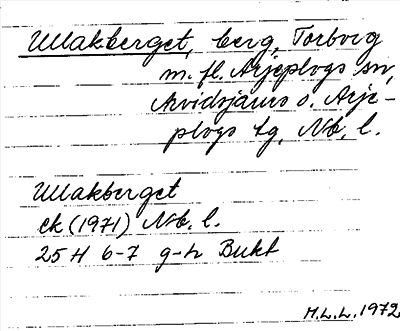 Ullakberget, berg, Torborg
m. fl. Arjeplogs sn,
Arvidsjaurs o. Arje-
plogs tg, Nb. l.
Ullakberget
ek (1971) Nb. l.
25H 6-7 g-h Bukt
M.L.L. 1972